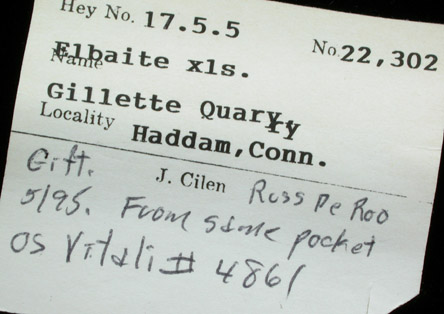 Hey No. 17.5.5
No. 22,302
Elbaite xls.
Name
Gillette Quarry
Locality
Haddam, Conn.
Gift. J. Cilen Ross De Roo
5/95. From same pocket
os Vitali # 4861